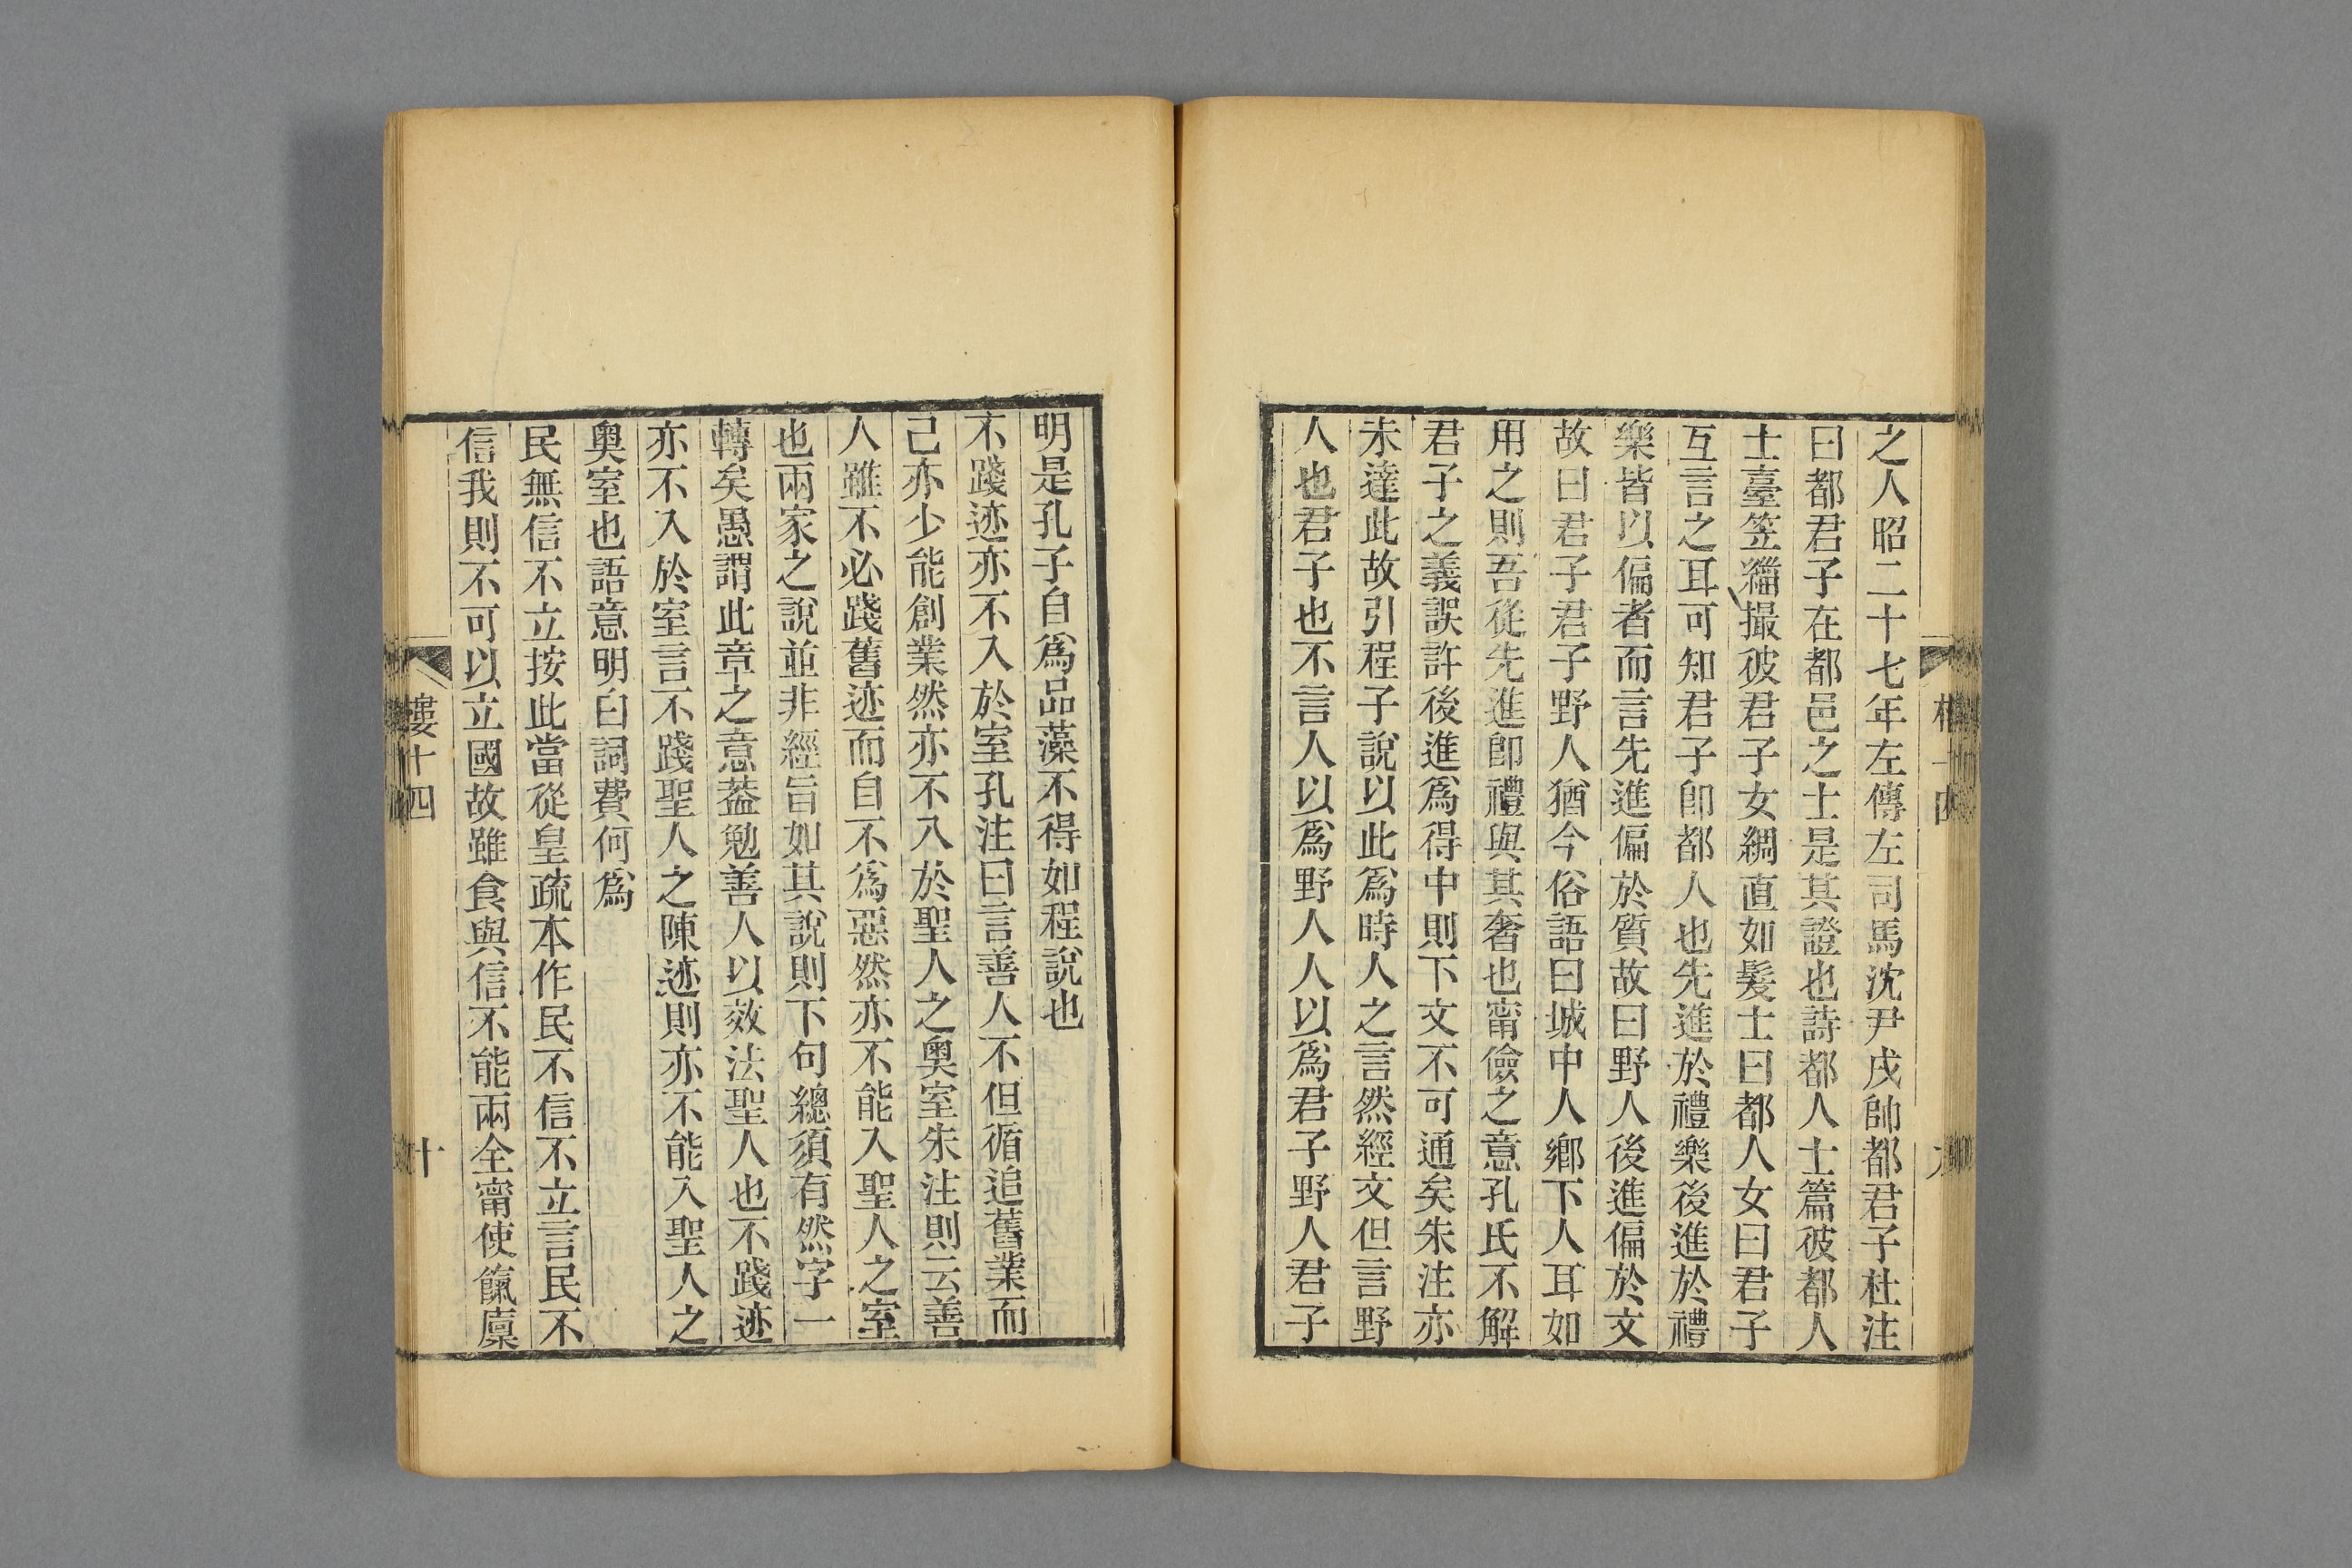 之人昭二十七年左傳左司馬沈尹戌帥都君子杜注
曰都君子在都邑之士是其證也詩都人士篇彼都人
士臺笠緇撮彼君子女綢直如髮士曰都人女曰君子
互言之耳可知君子卽都人也先進於禮樂後進於禮
樂皆以偏者而言先進偏於質故曰野人後進偏於文
故曰君子君子野人猶今俗語曰城中人鄉下人耳如
用之則吾從先進卽禮與其奢也甯儉之意孔氏不解
君子之義誤許後進爲得中則下文不可通矣朱注亦
未達此故引程子說以此爲時人之言然經文但言野
人也君子也不言人以爲野人人以爲君子野人君子
明是孔子自爲品藻不得如程說也
不踐迹亦不入於室孔注曰言善人不但循追舊業而
己亦少能創業然亦不入於聖人之奧室朱注則云善
人雖不必踐舊迹而自不爲惡然亦不能入聖人之室
也兩家之說並非經旨如其說則下句總須有然字一
轉矣愚謂此章之意葢勉善人以效法聖人也不踐迹
亦不入於室言不踐聖人之陳迹則亦不能入聖人之
奧室也語意明白詞費何爲
民無信不立按此當從皇疏本作民不信不立言民不
信我則不可以立國故雖食與信不能兩全甯使餼廩
樓十四
十